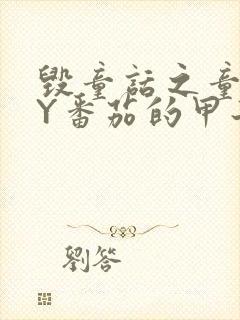 毁童话之童
Y番茄的甲
劉答